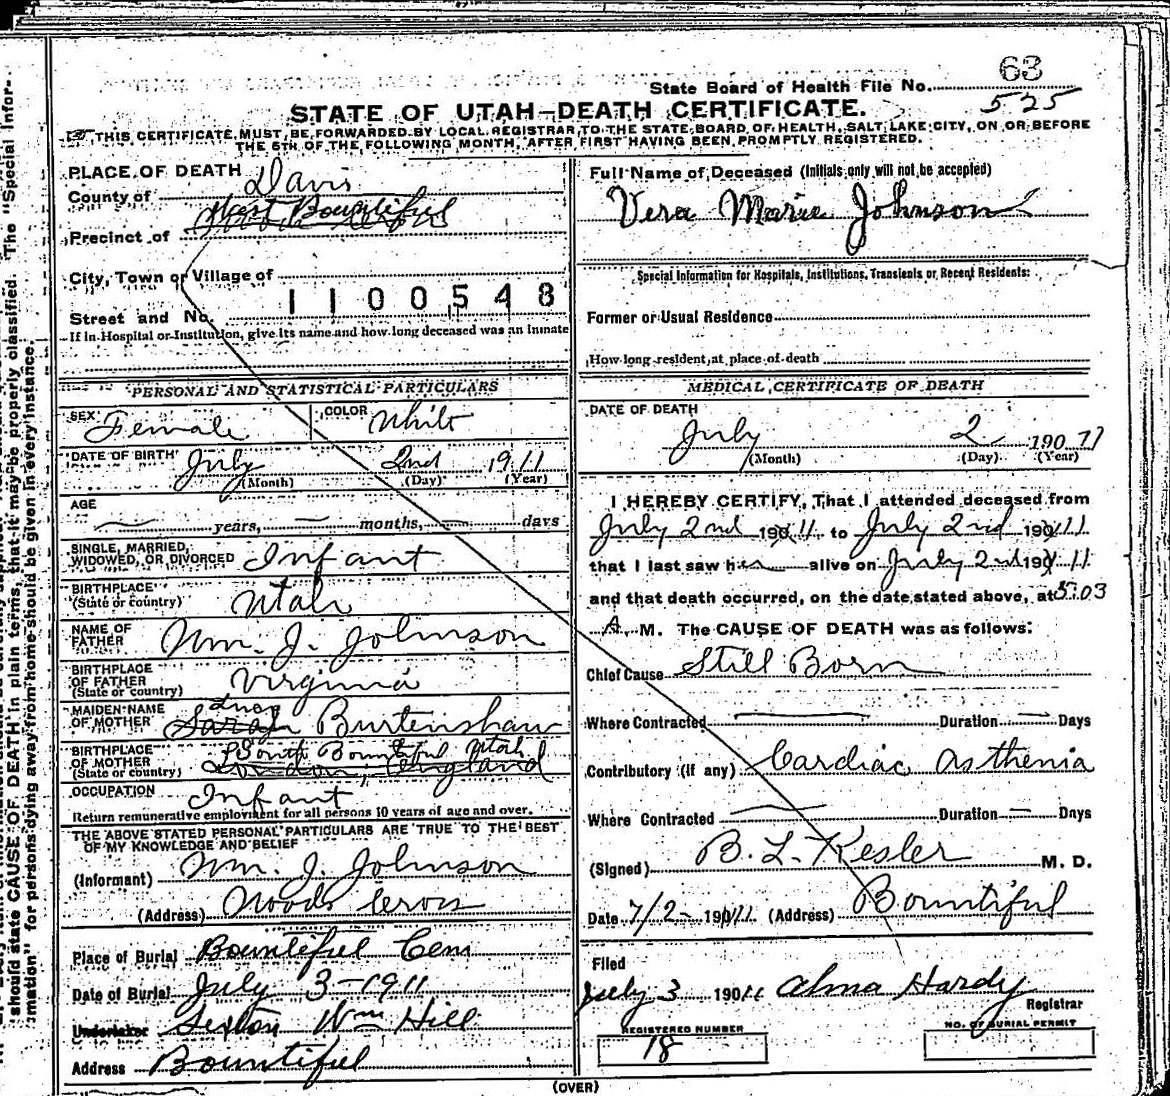 63
State Board of Health File No. 525
STATE OF UTAH—DEATH CERTIFICATE.
THIS CERTIFICATE MUST BE FORWARDED BY LOCAL REGISTRAR TO THE STATE BOARD OF HEALTH, SALT LAKE CITY, ON OR BEFORE
THE 5TH OF THE FOLLOWING MONTH, AFTER FIRST HAVING BEEN PROMPTLY REGISTERED.
PLACE OF DEATH
County of Davis
Precinct of West Bountiful
City, Town or Village of
1100548
Street and No.
If in Hospital or Institution, give its name and how long deceased was an inmate
PERSONAL AND STATISTICAL PARTICULARS
SEX Female COLOR White
DATE OF BIRTH July 2nd 1911
(Month) (Day) (Year)
AGE
— years, — months, — days
SINGLE, MARRIED,
WIDOWED, OR DIVORCED Infant
BIRTHPLACE
(State or country) Utah
NAME OF
FATHER Wm. J. Johnson
BIRTHPLACE
OF FATHER
(State or country) Virginia
MAIDEN NAME
OF MOTHER Sarah Burtenshaw
BIRTHPLACE
OF MOTHER South Bountiful Utah
(State or country) London, England
OCCUPATION Infant
Return remunerative employment for all persons 10 years of age and over.
THE ABOVE STATED PERSONAL PARTICULARS ARE TRUE TO THE BEST
OF MY KNOWLEDGE AND BELIEF
(Informant) Wm. J. Johnson
(Address) Woods Cross
Place of Burial Bountiful Cem
Date of Burial July 3-1911
Undertaker Sexton Wm Hill
Address Bountiful
Full Name of Deceased (Initials only will not be accepted)
Vera Marie Johnson
Special Information for Hospitals, Institutions, Transients or Recent Residents:
Former or Usual Residence
How long resident at place of death
MEDICAL CERTIFICATE OF DEATH
DATE OF DEATH
July 2 190 11
(Month) (Day) (Year)
I HEREBY CERTIFY, That I attended deceased from
July 2nd 190 11 to July 2nd 190 11
that I last saw her alive on July 2nd 190 11
and that death occurred, on the date stated above, at 5:03
A. M. The CAUSE OF DEATH was as follows:
Chief Cause Still Born
Where Contracted — Duration — Days
Contributory (if any) Cardiac Asthenia
Where Contracted — Duration — Days
(Signed) B. L. Kesler M. D.
Date 7/2- 190 11 (Address) Bountiful
Filed
July 3 190 11 Alma Hardy
Registrar
REGISTERED NUMBER
18
NO. OF BURIAL PERMIT
(OVER)
should state CAUSE OF DEATH in plain terms, that it may be properly classified. The "Special Infor-
mation" for persons dying away from home should be given in every instance.